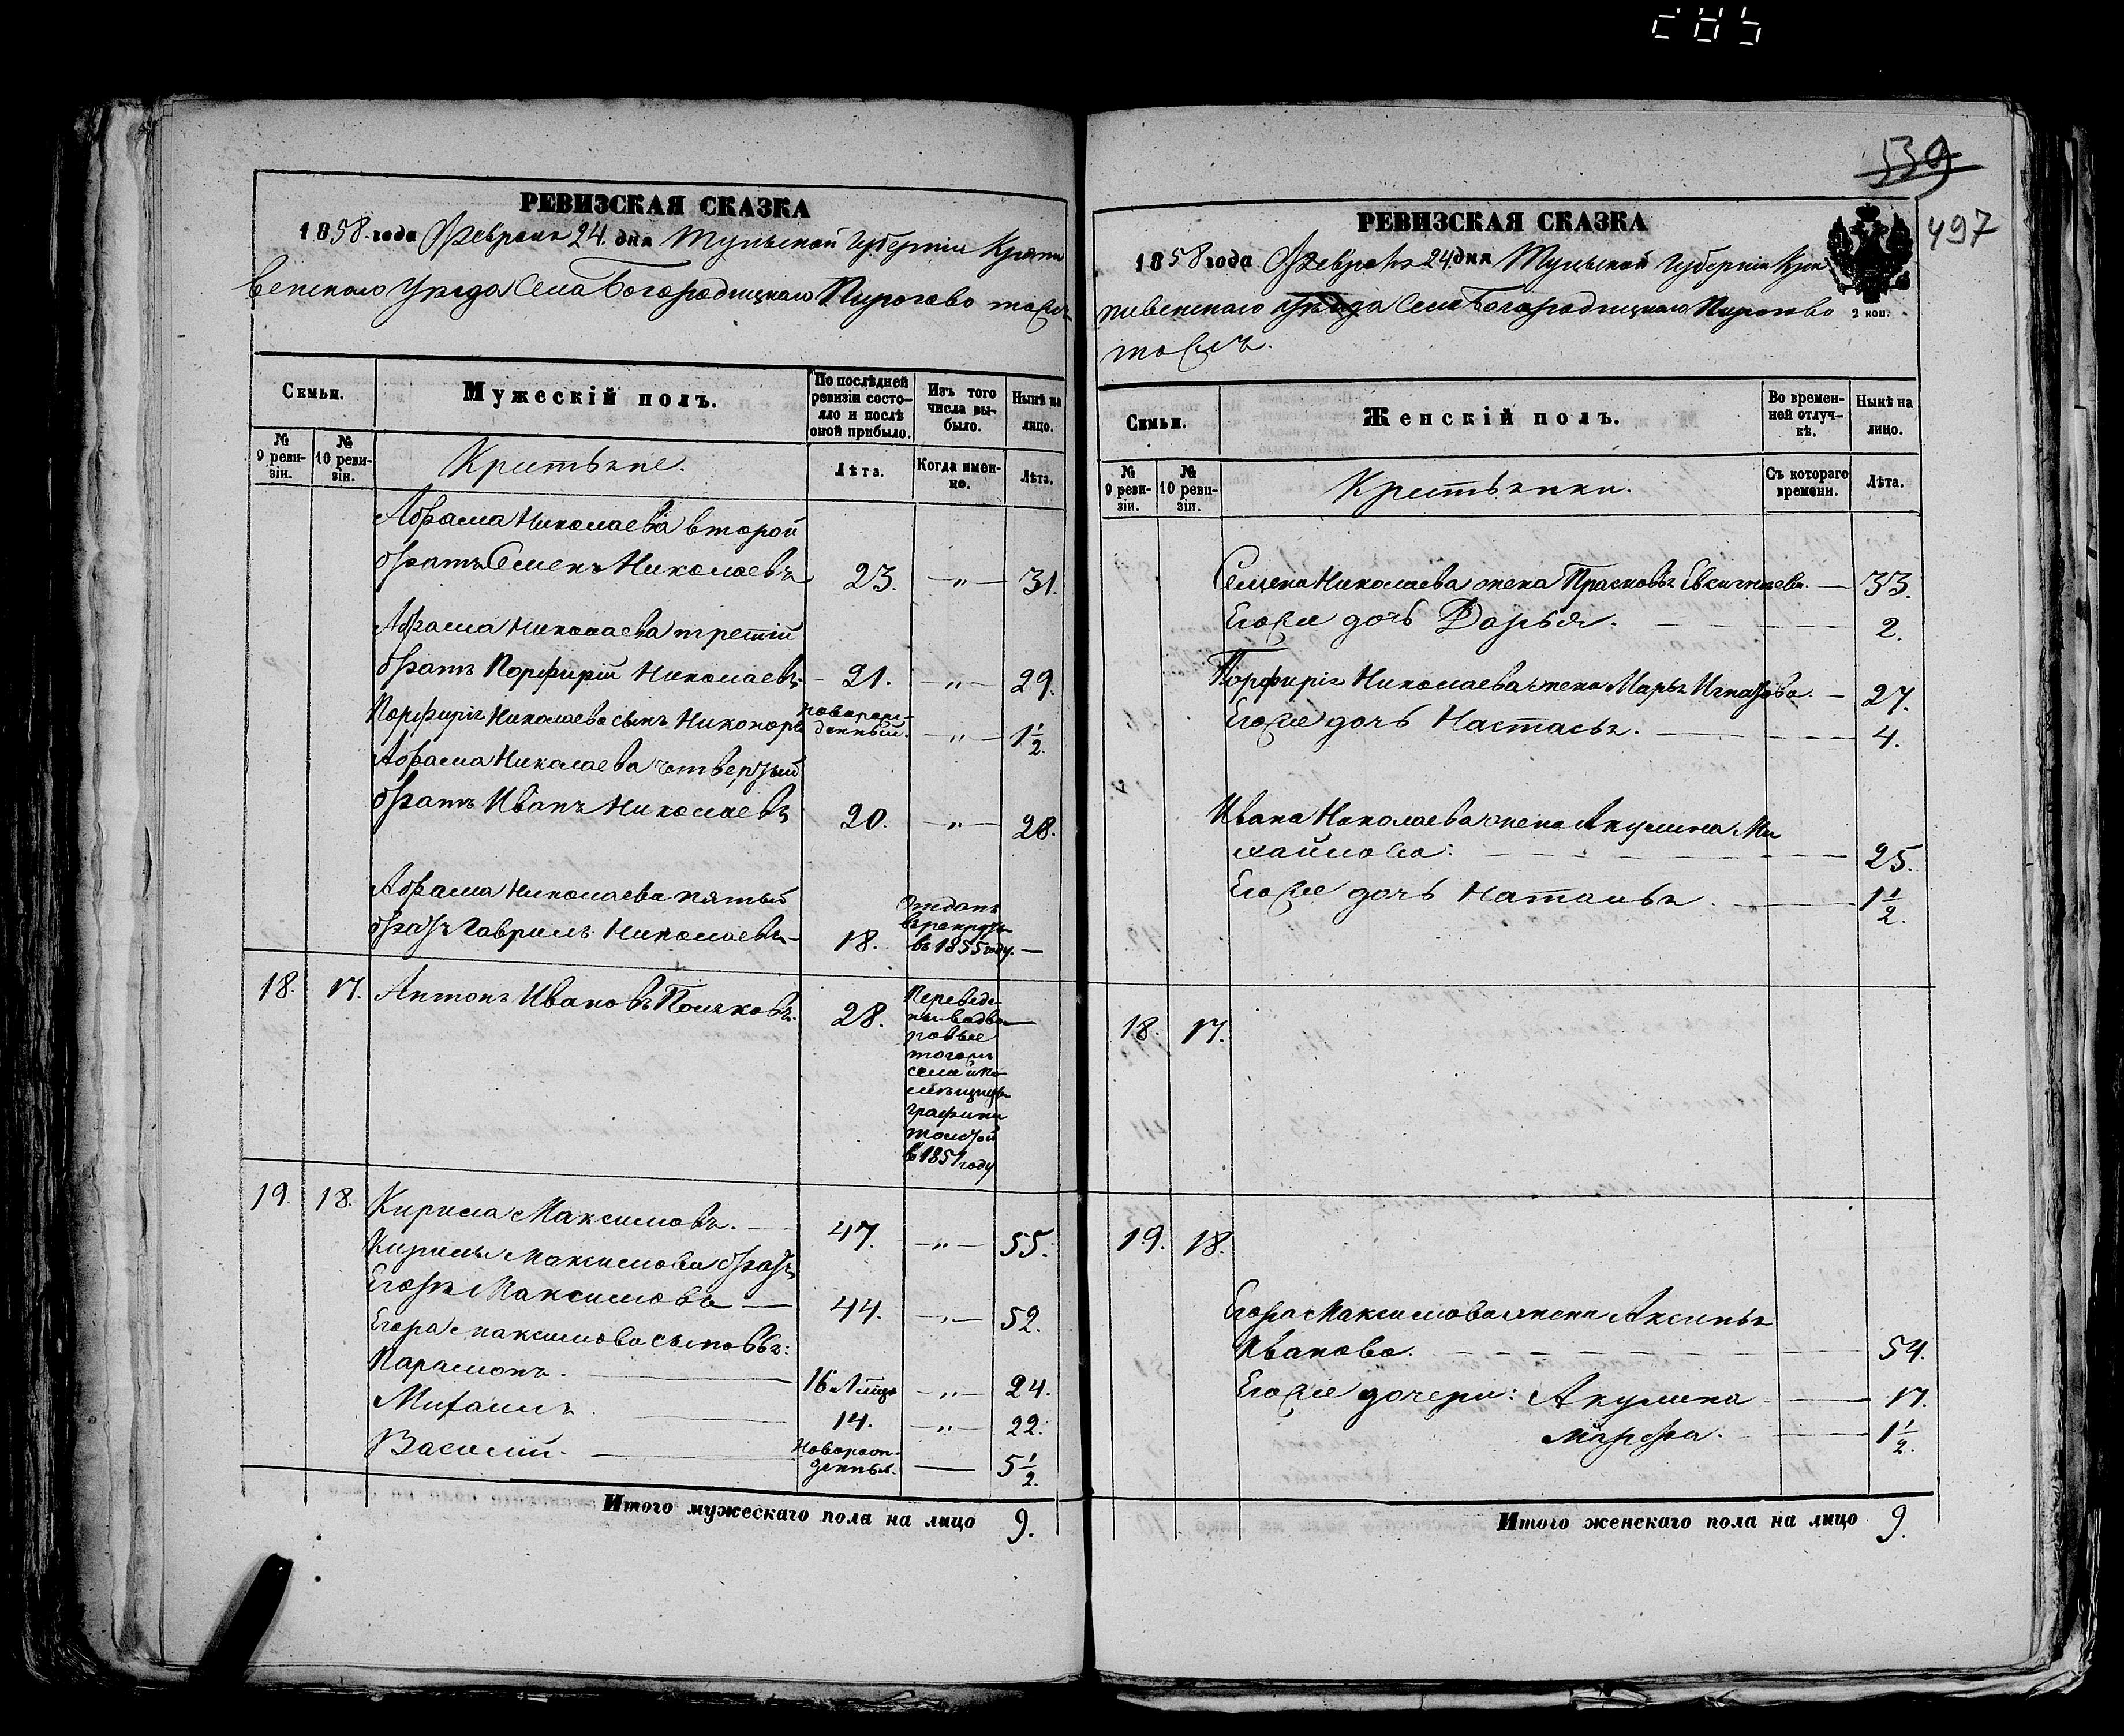 539
497
РЕВИЗСКАЯ СКАЗКА
1858 года Февраля 24 дня Тульской Губерніи Крапи
венскаго Уѣзда Села Богородицкаго Пирогово тожъ
Семьи.
Мужескій полъ.
По послѣдней ревизіи состо-
яло и послѣ
оной прибыло.
Изъ того
числа вы-
было.
Нынѣ на
лицо.
№
9 реви-
зіи.
№
10 реви-
зіи.
Крестьяне.
Лѣта.
Когда имен-
но.
Лѣта.
Абрама Николаева второй
братъ Семенъ Николаевъ 23. —„— 31.
Абрама Николаева третій
братъ Порфирій Николаевъ — 21. —„— 29.
Порфирія Николаева сынъ Никоноръ новорож-
денный. —„— 1½.
Абрама Николаева четвертый
братъ Иванъ Николаевъ 20. —„— 28.
Абрама Николаева пятый
братъ Гаврилъ Николаевъ — 18. Отданъ
в рекруты
въ 1855 году. —
18. 17. Антонъ Ивановъ Поляковъ. 28. Переведе
новые
тогожъ
села
графини
Толстой
в 185 году
19. 18. Кирила Максимовъ. — 47. —„— 55.
Кирилы Максимова братъ
Егоръ Максимовъ — 44. —„— 52.
Егора Максимова сыновья:
Парамонъ. — 16 —„— 24.
Михаилъ — 14. —„— 22.
Василій. — Новорож-
денный. — 5½.
Итого мужескаго пола на лицо 9.
РЕВИЗСКАЯ СКАЗКА
1858 года Февраля 24 дня Тульской Губерніи Кра
пивенскаго уѣзда Села Богородицкаго Пирогово
тожъ.
2 коп.
Семьи.
Женскій полъ.
Во времен-
ной отлуч-
кѣ.
Нынѣ на
лицо.
№
9 реви-
зіи.
№
10 реви-
зіи.
Крестьянки.
Съ котораго
времени.
Лѣта.
Семена Николаева жена Прасковья Евсигнѣева. — 33.
Его же дочь Дарья. — 2.
Порфирія Николаева жена Марья Игнатова. — 27.
Его же дочь Настасья. — 4.
Ивана Николаева жена Акулина Ми
хайлова: — 25.
Его же дочь Наталья. — 1½.
18. 17.
19. 18.
Егора Максимова жена Аксинья
Иванова. — 54.
Его же дочери: Акулина — 17.
Марфа. — 1½.
Итого женскаго пола на лицо 9.